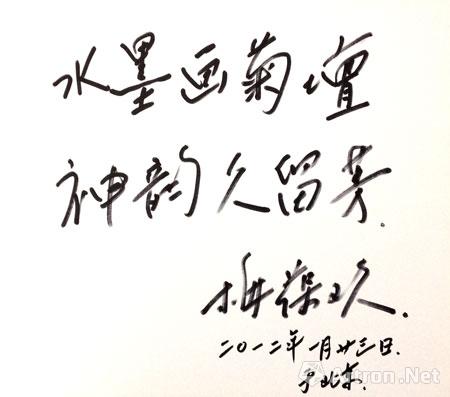 水墨画菊坛
神韵久留芳.
梅葆玖.
二〇一二年一月廿三日.
于北京.
Artron.Net